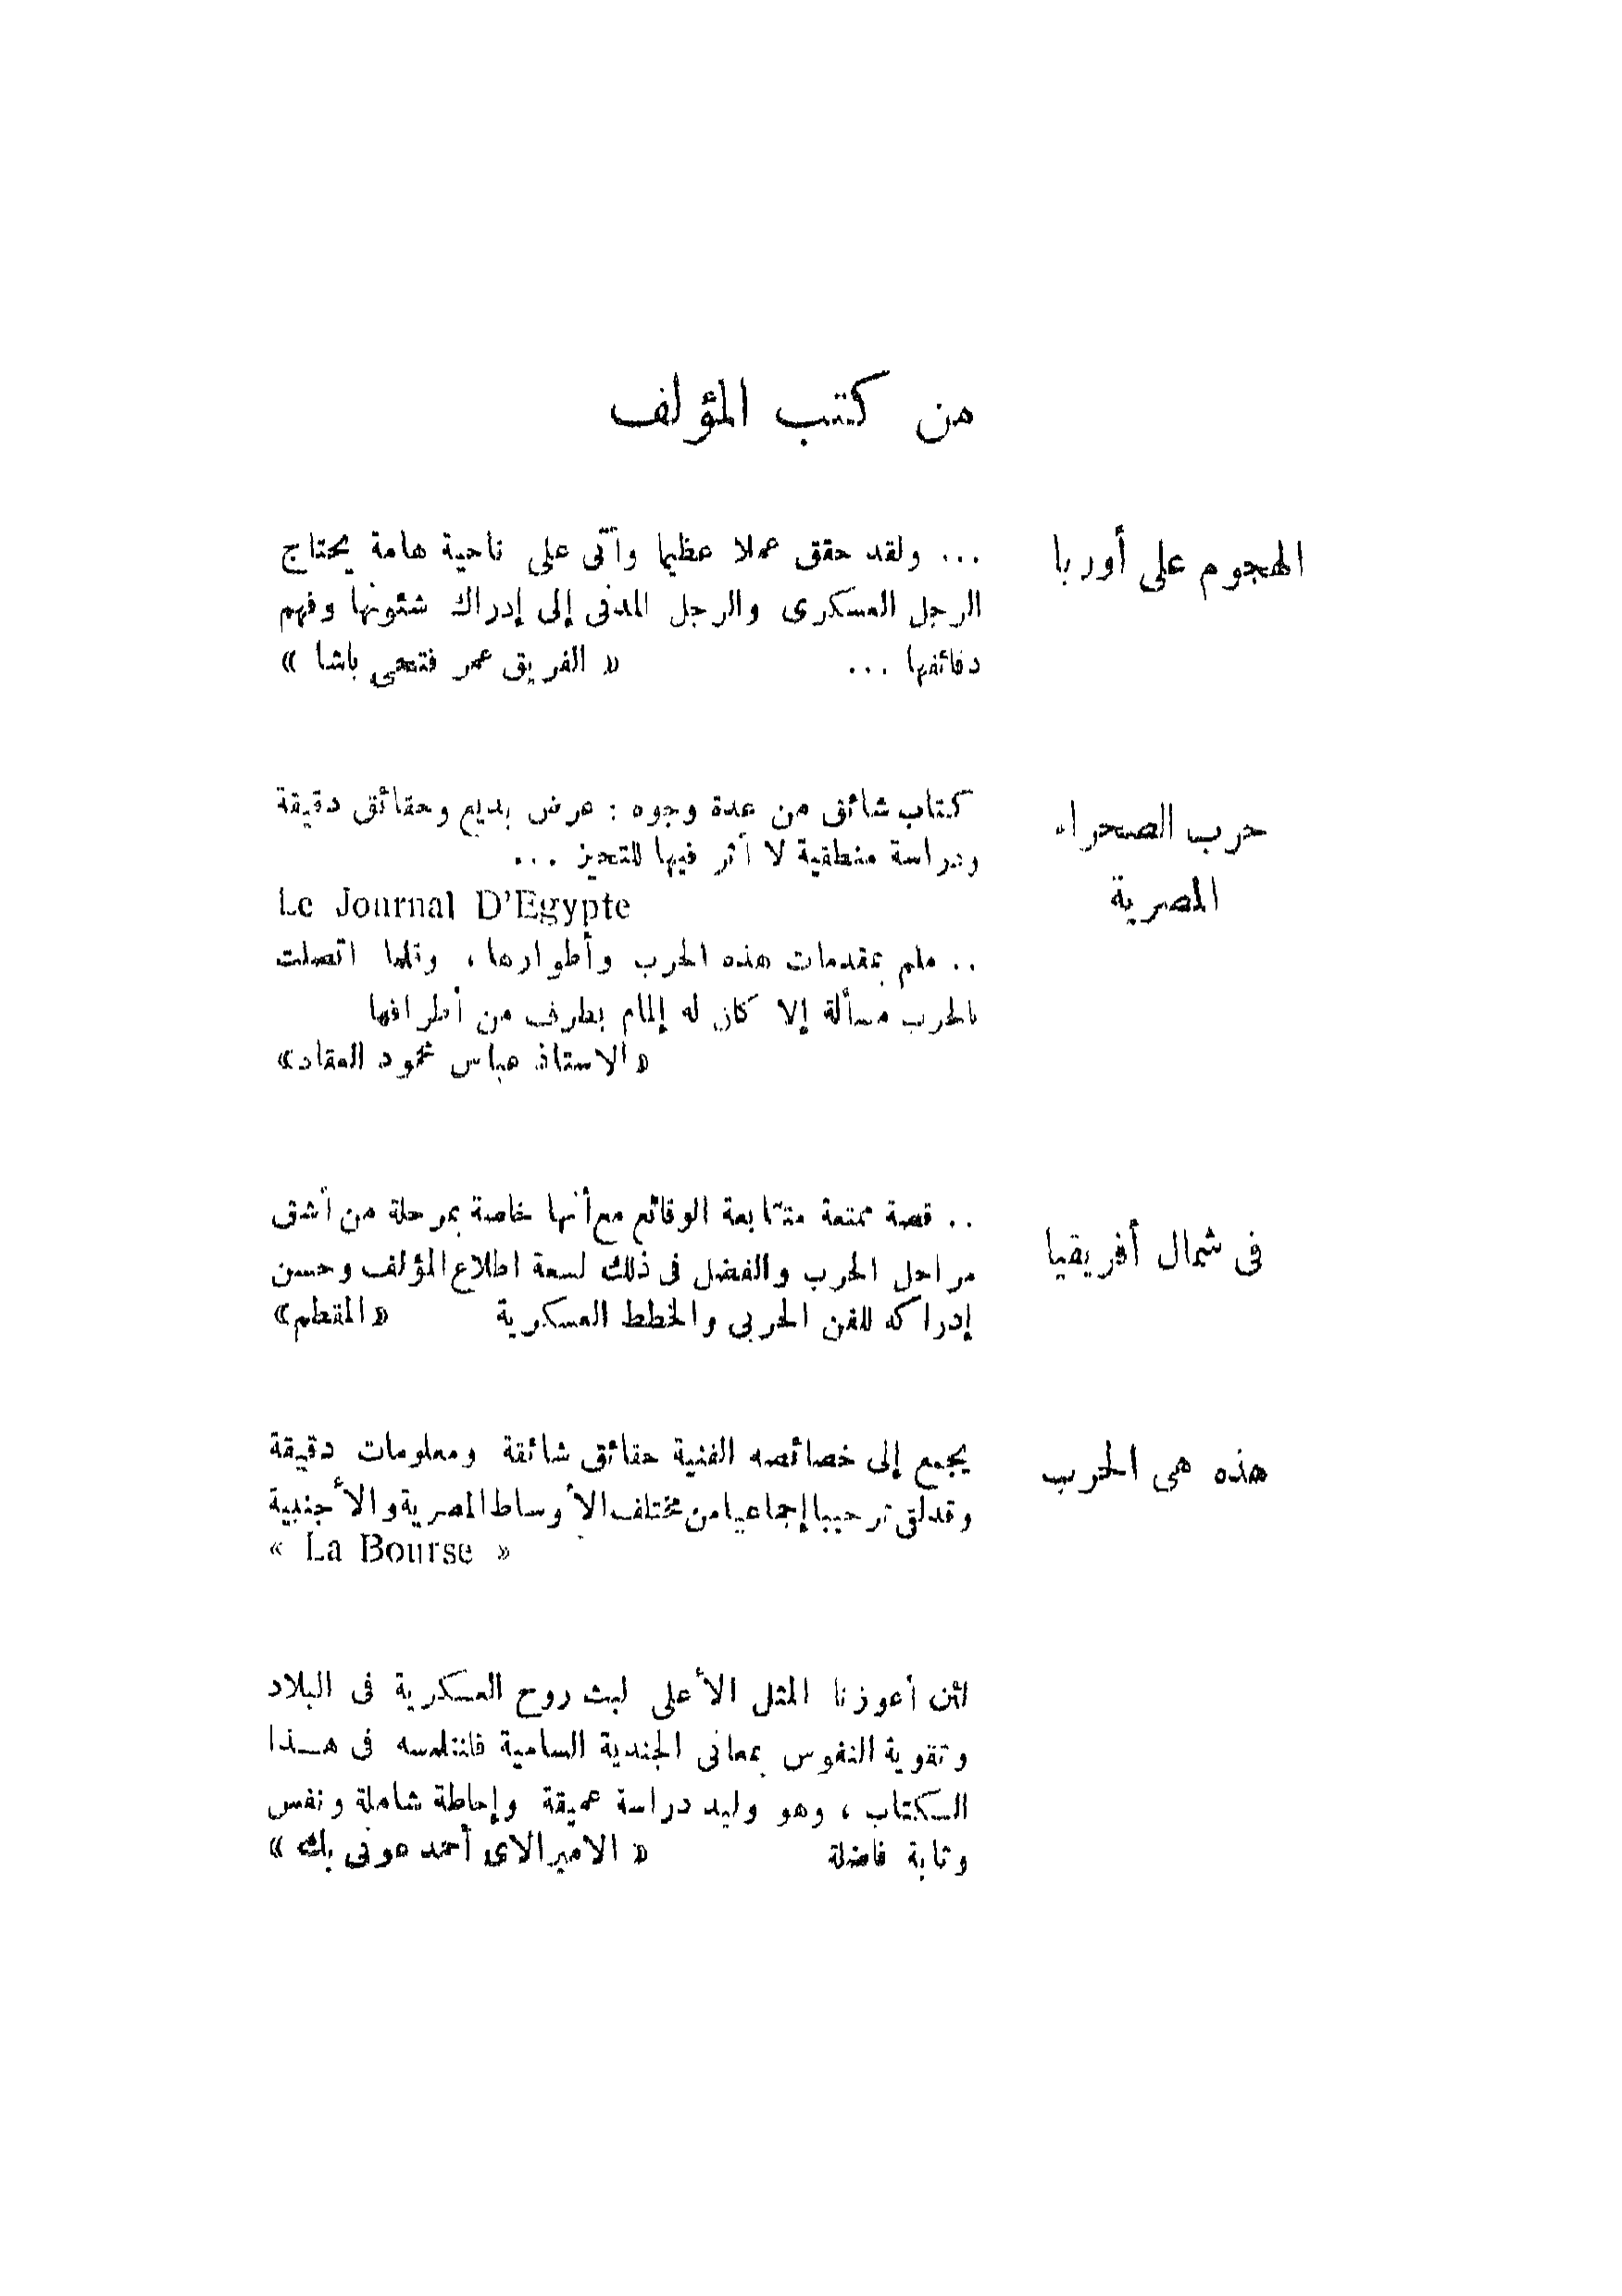 من كتب المؤلف
الهجوم على أوربا
... ولقد حقق عملا عظيما وأتى على ناحية هامة يحتاج
الرجل العسكرى والرجل المدنى إلى إدراك شئونها وفهم
دقائقها ... « الفريق عمر فتحى باشا »
حرب الصحراء
المصرية
كتاب شائق من عدة وجوه : عرض بديع وحقائق دقيقة
ودراسة منطقية لا أثر فيها للتحيز ...
Le Journal D'Egypte
.. ملم بمقدمات هذه الحرب وأطوارها ، وقلما اتصلت
بالحرب مسألة إلا كان له إلمام بطرف من أطرافها
«الاستاذ عباس محمود العقاد»
فى شمال أفريقيا
.. قصة ممتعة متتابعة الوقائع مع أنها خاصة بمرحلة من أشق
مراحل الحرب والفضل فى ذلك لسعة اطلاع المؤلف وحسن
إدراكه للفن الحربى والخطط العسكرية «المقطم»
هذه هى الحرب
يجمع إلى خصائصه الفنية حقائق شائقة ومعلومات دقيقة
وقد لقى ترحيبا إجماعيا من مختلف الأوساط المصرية والأجنبية
« La Bourse »
لئن أعوزنا المثل الأعلى لبث روح العسكرية فى البلاد
وتقوية النفوس بمعانى الجندية السامية فلنتلمسه فى هـذا
الكتاب ، وهو وليد دراسة عميقة وإحاطة شاملة ونفس
وثابة فاضلة « الاميرالاى أحمد عونى بك »